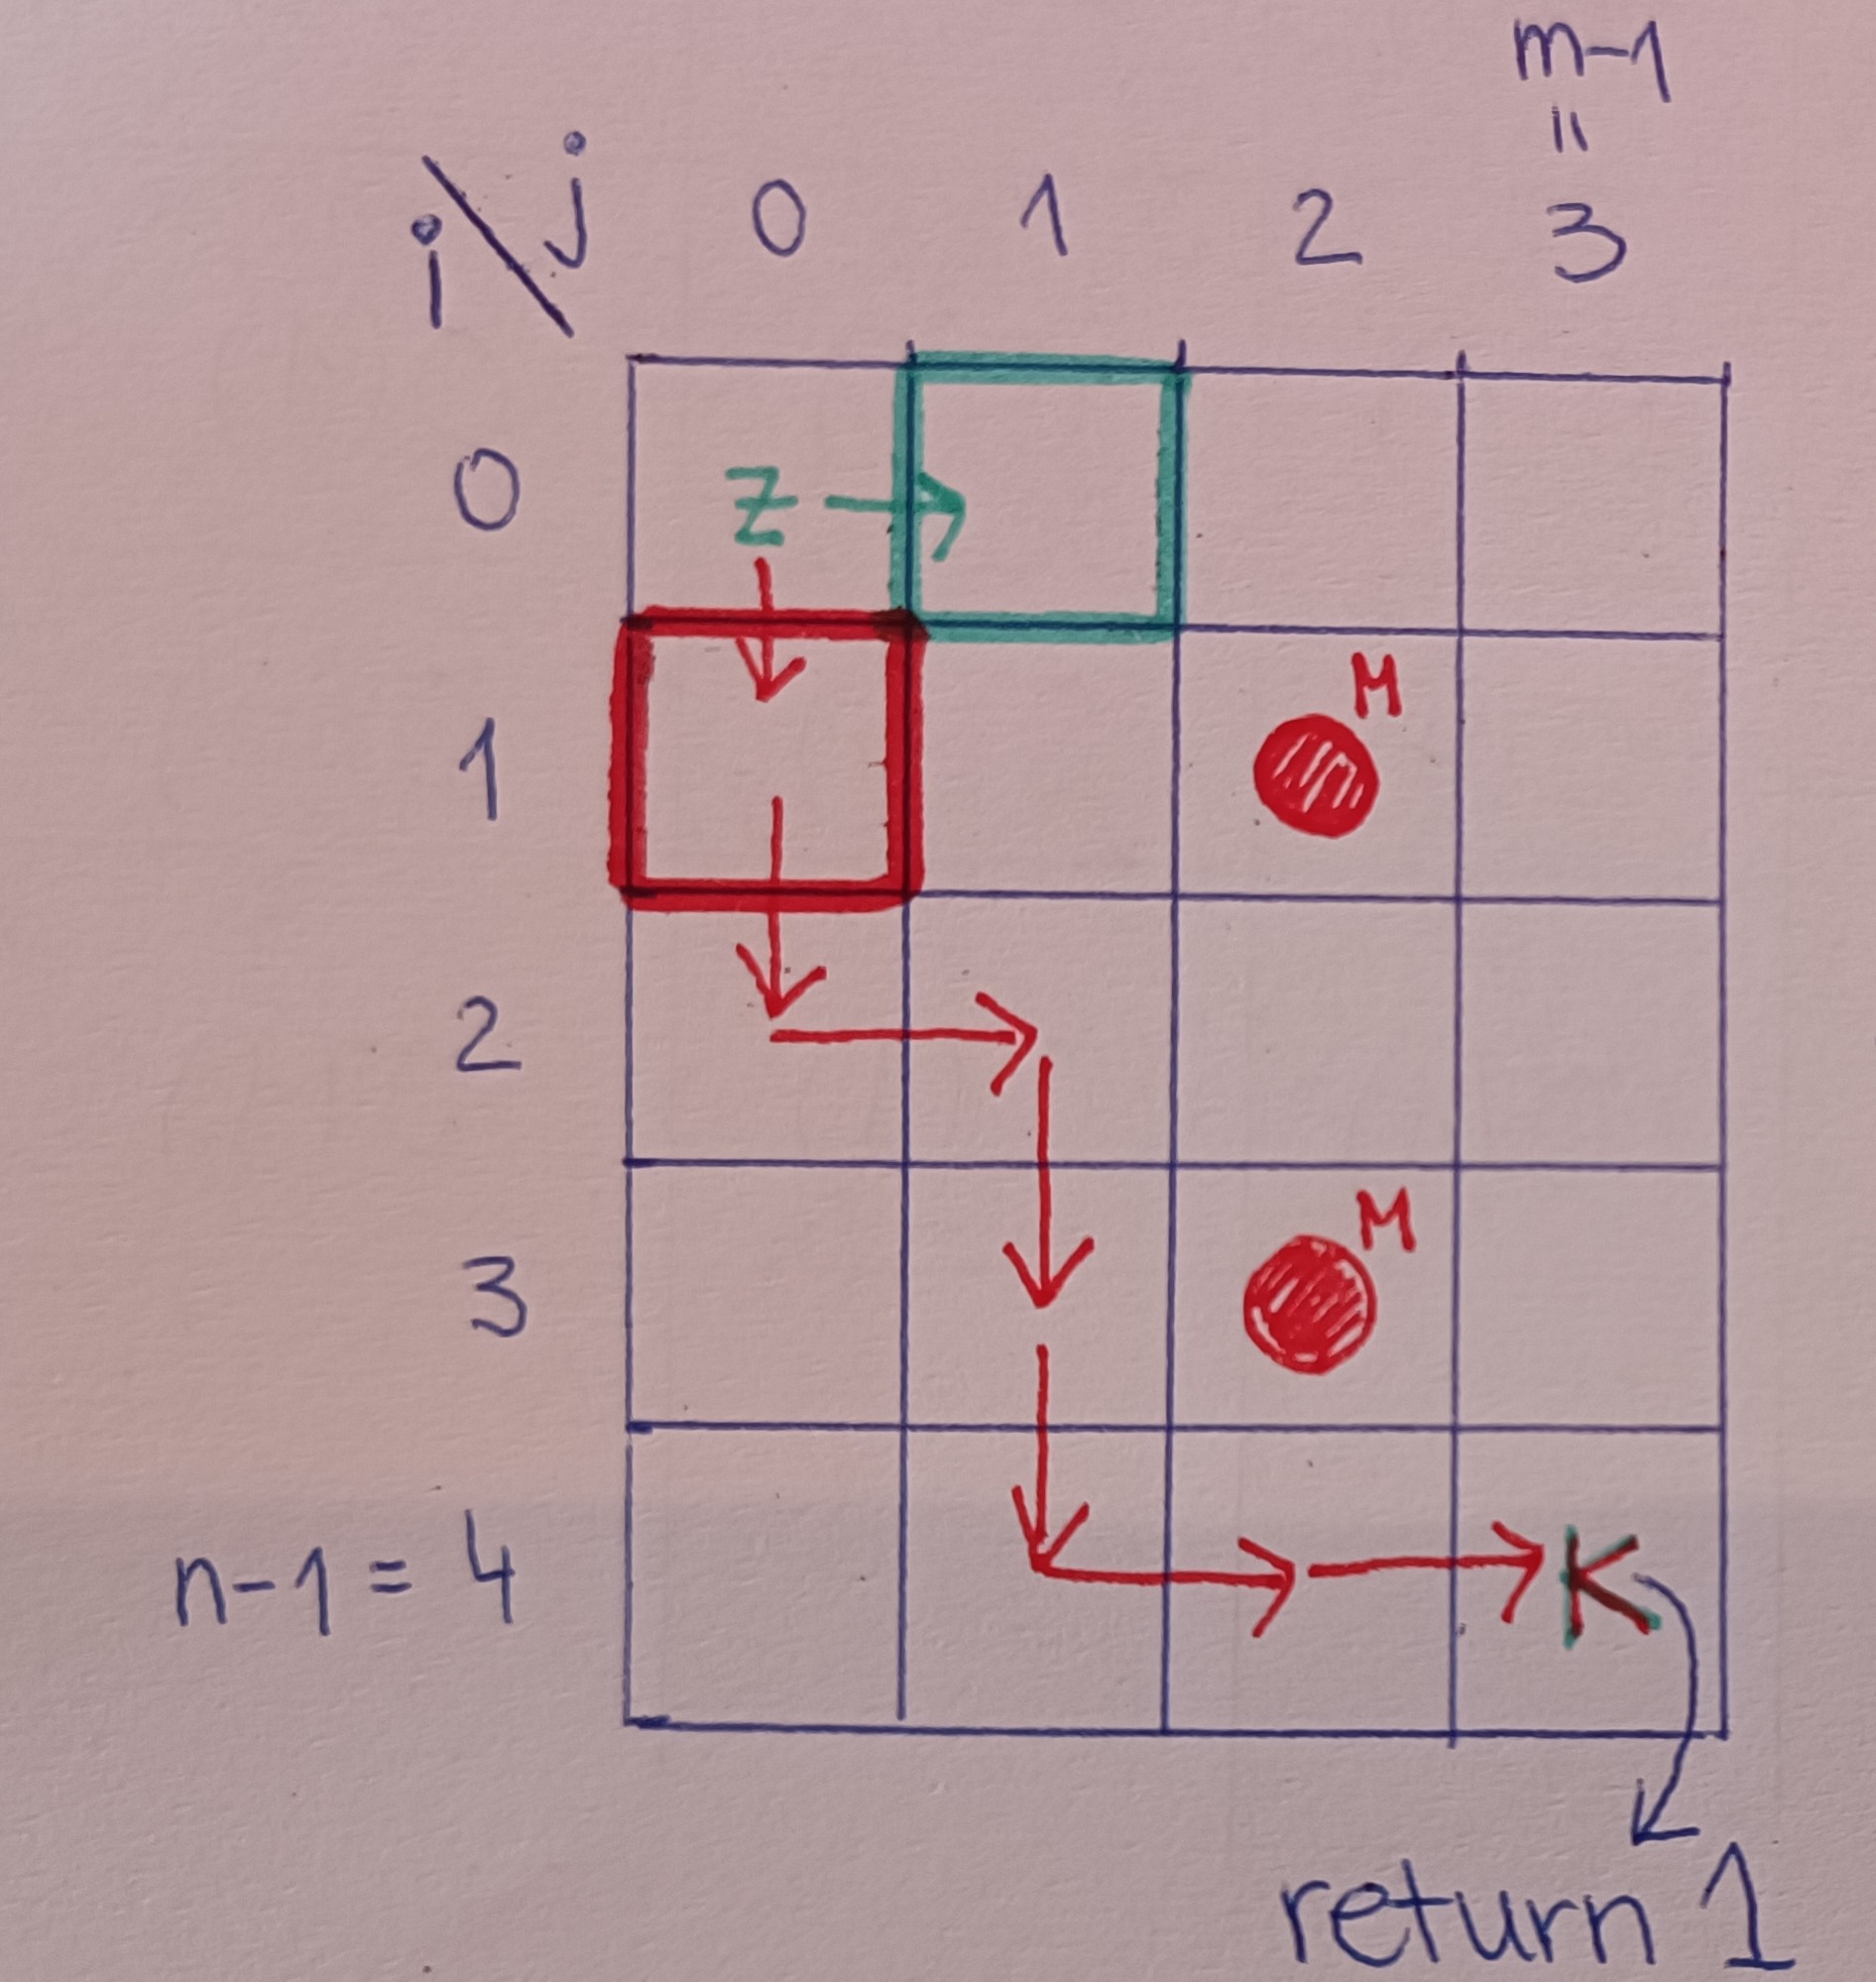 m-1
=
i\j 0 1 2 3
0 Z
1 M
2
3 M
n-1 = 4 K
return 1